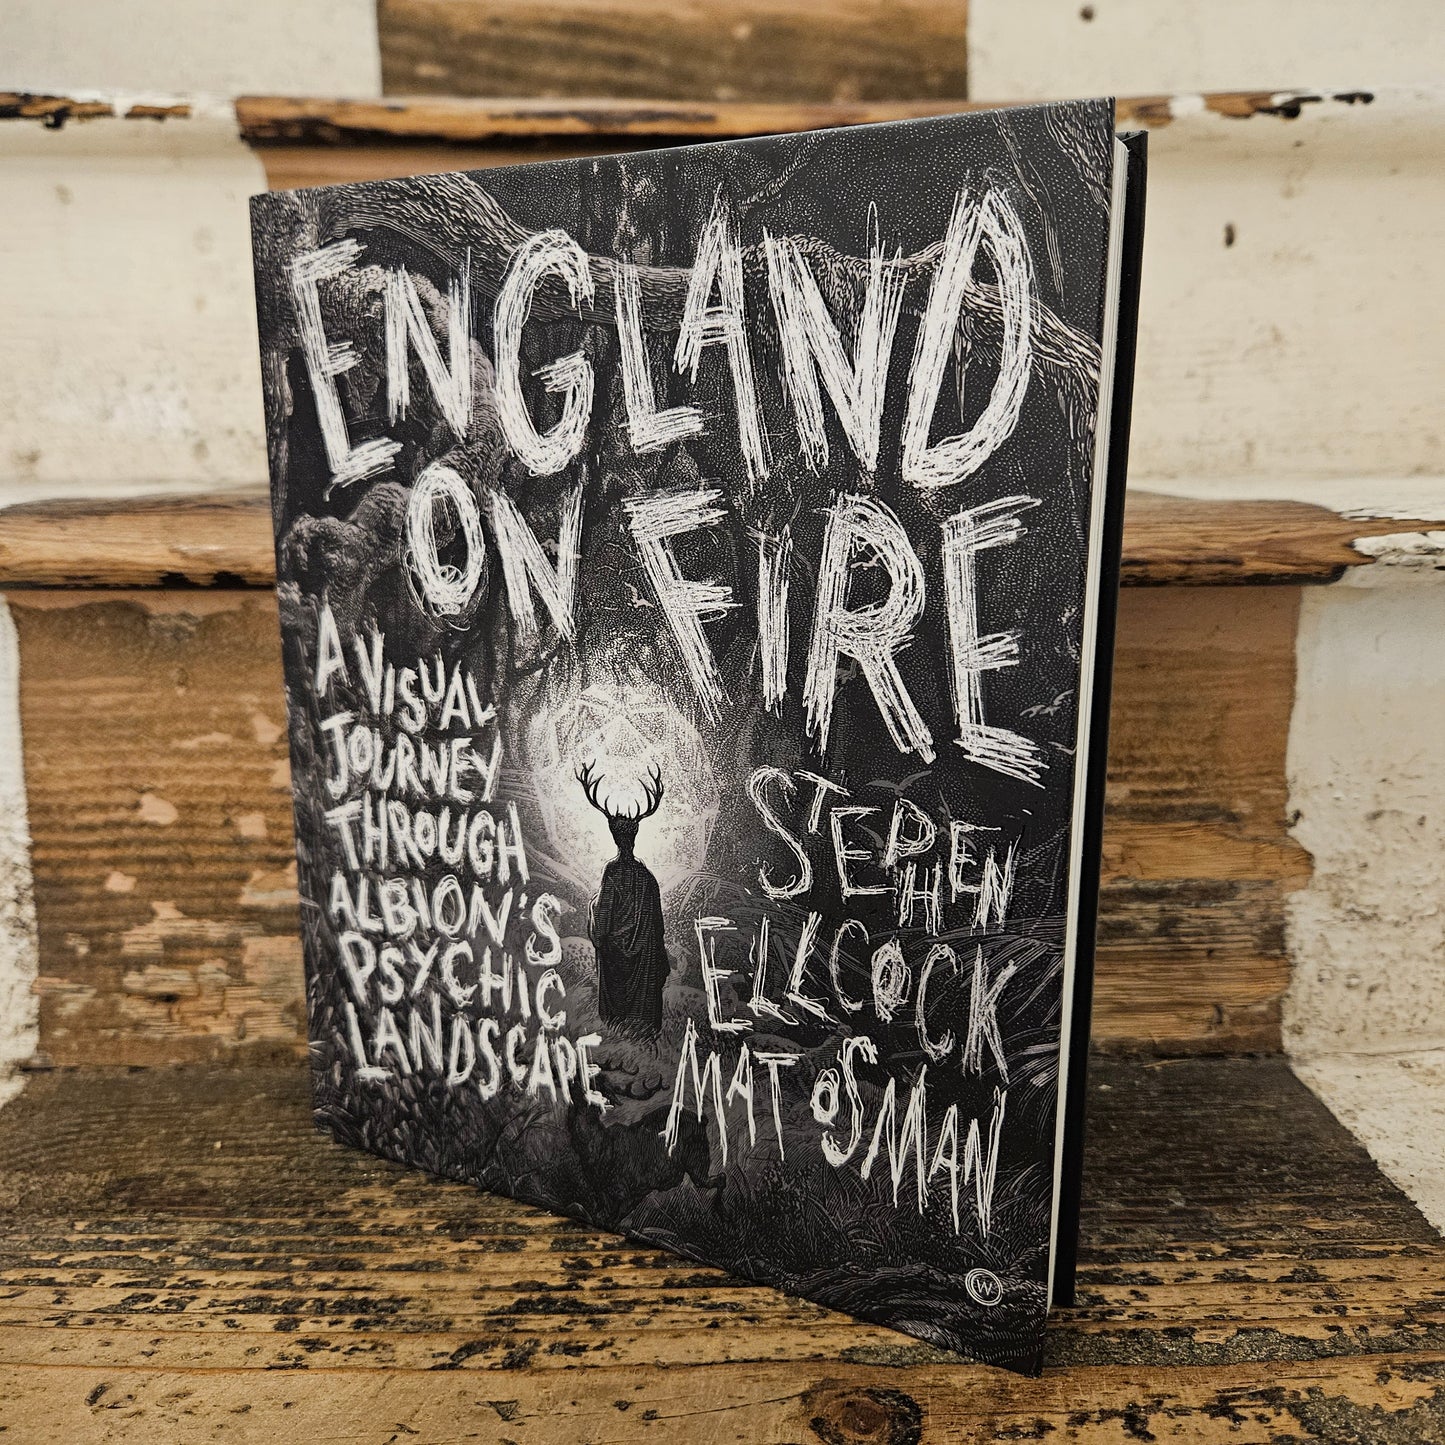 ENGLAND
ON FIRE
A VISUAL
JOURNEY
THROUGH
ALBION'S
PSYCHIC
LANDSCAPE
STEPHEN
ELLCOCK
MAT OSMAN
W